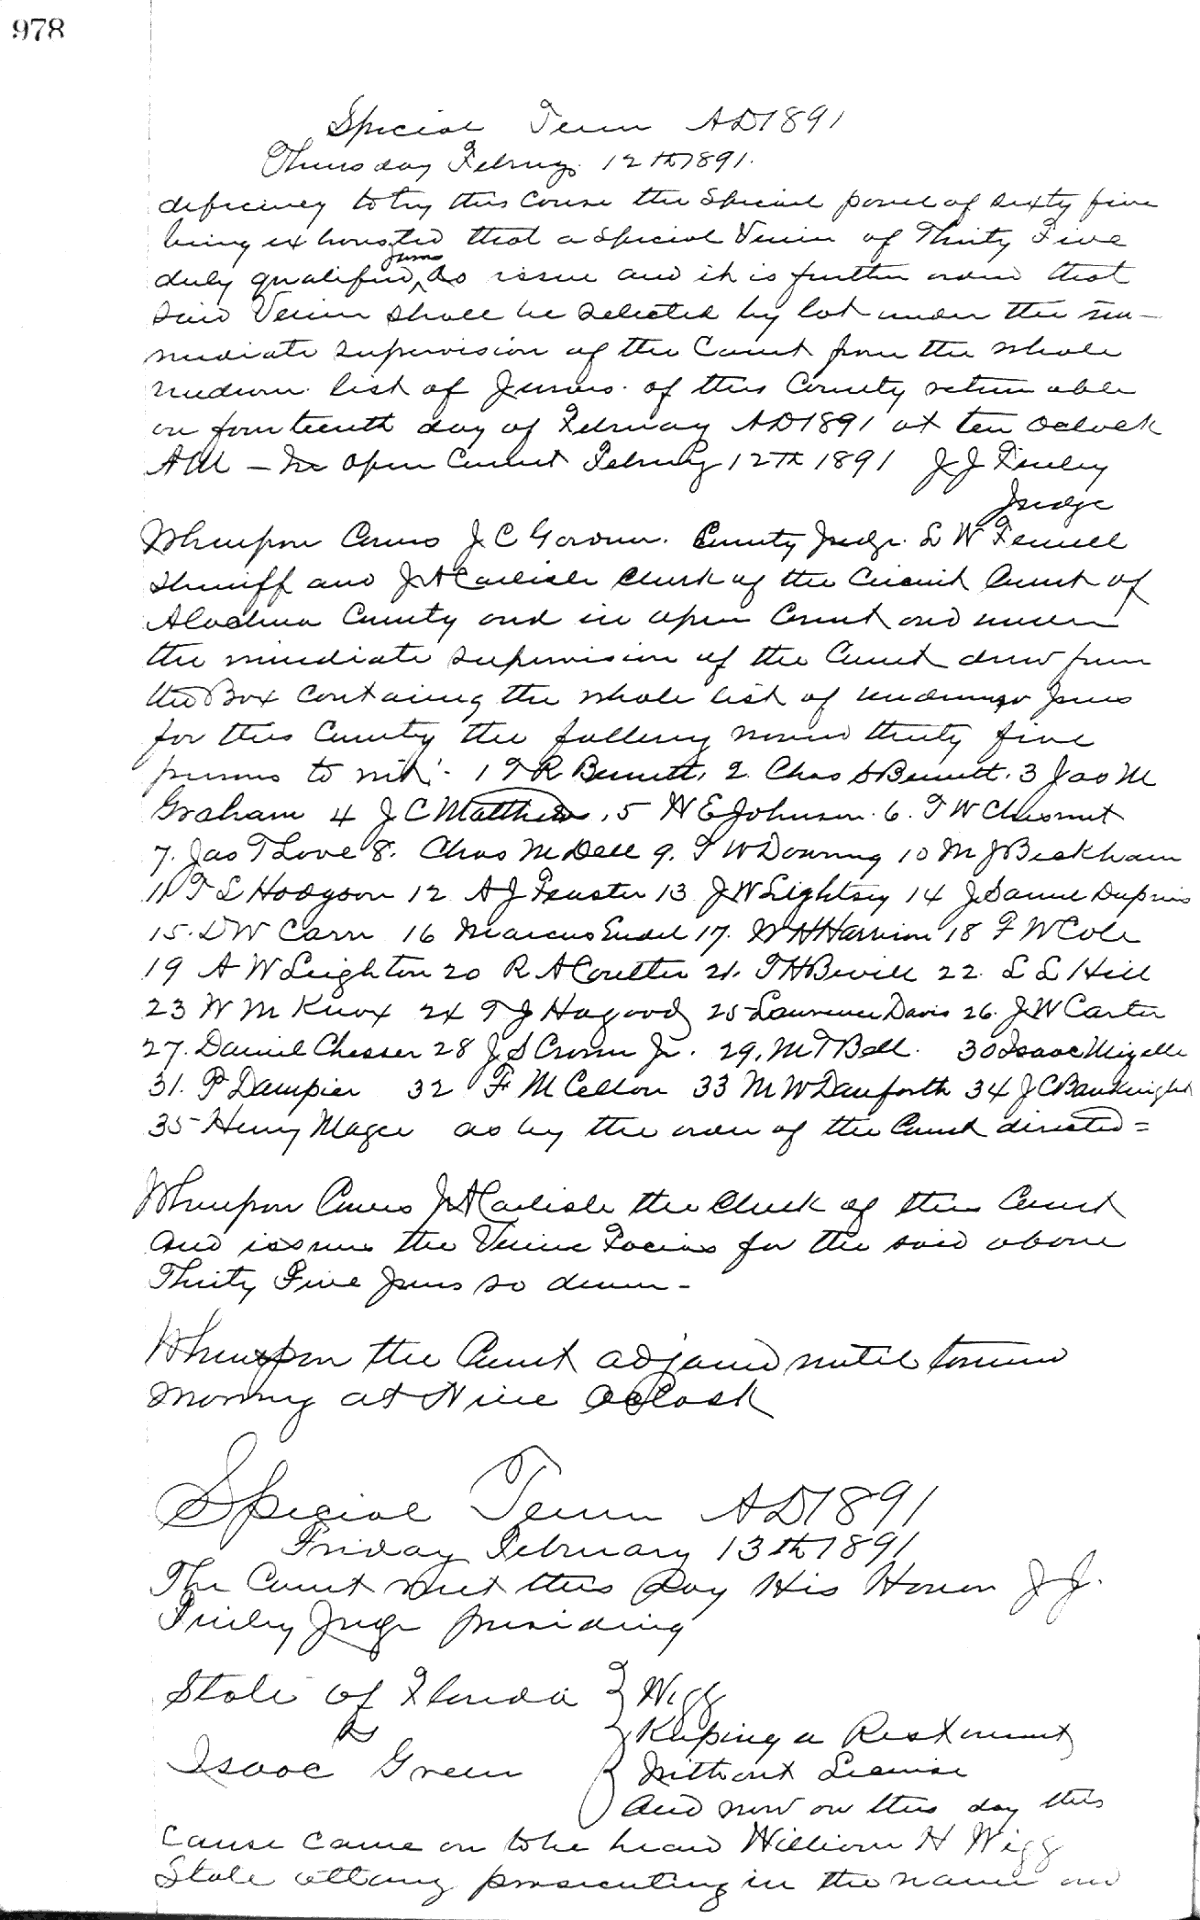 978
Special Term AD1891
Thursday Febuary 12th 1891.
deficiency to try this Cause the Special panel of sixty five
being exhausted that a Special Venire of Thirty Five
Jurors
duly qualified do issue and it is further order that
said Venire shall be selected by lot under the im-
mediate supervision of the Court from the whole
list of Jurors of this County returnable
on fourteenth day of February AD1891 at ten Oclock
AM — In Open Court February 12th 1891 J J Finley
Judge
Whereupon Comes J. C Gardner. County Judge. L W Fennell
Sheriff and J A Carlisle Clerk of the Circuit Court of
Alachua County and in open Court and under
the immediate supervision of the Court drew from
the Box containing the whole list of Jurors
for this County the following named thirty five
persons to wit: - 1 T R Bennett, 2. Chas S Bennett. 3 Jas M
Graham 4 J C Matthews, 5 H E Johnson. 6. T W Chesnut
7. Jas T Love 8. Chas M Dell 9. T W Downing 10 M J Beckham
11 T L Hodgson 12 A J Feaster 13 J W Lightsey 14 J Samuel Dupuis
15. D W Carn 16 Marcus Endel 17. W H Harrison 18 F W Cole
19 A W Leighton 20 R A Coulter 21. T H Bevill 22. L L Hill
23 W M Knox 24 T J Hagood 25 Lawrence Davis 26. J. W Carter
27. Daniel Chesser 28 J S Crown Jr. 29. M T Bell. 30 Isaac Mizelle
31. P Dampier 32 F M Cellon 33 M W Danforth 34 J C Bauknight
35 Henry Magee as by the order of the Court directed =
Whereupon Comes J A Carlisle the Clerk of this Court
and issues the Venire Facias for the said above
Thirty Five Jurors so drawn -
Whereupon the Court adjourned until tomorrow
Morning at Nine Oclock
Special Term AD1891
Friday February 13th 1891
The Court met this Day His Honor J. J.
Finley Judge presiding
State of Florida } Wigg
vs } Keeping a Restaurant
Isaac Green } Without License
And now on this day this
cause came on to be heard William H Wigg
State attorney prosecuting in the name and